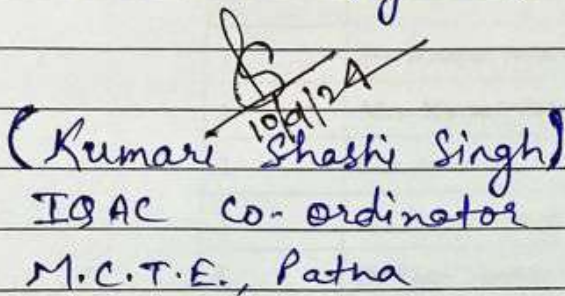 10/9/24
(Kumari Shashi Singh)
IQAC Co-ordinator
M.C.T.E., Patna